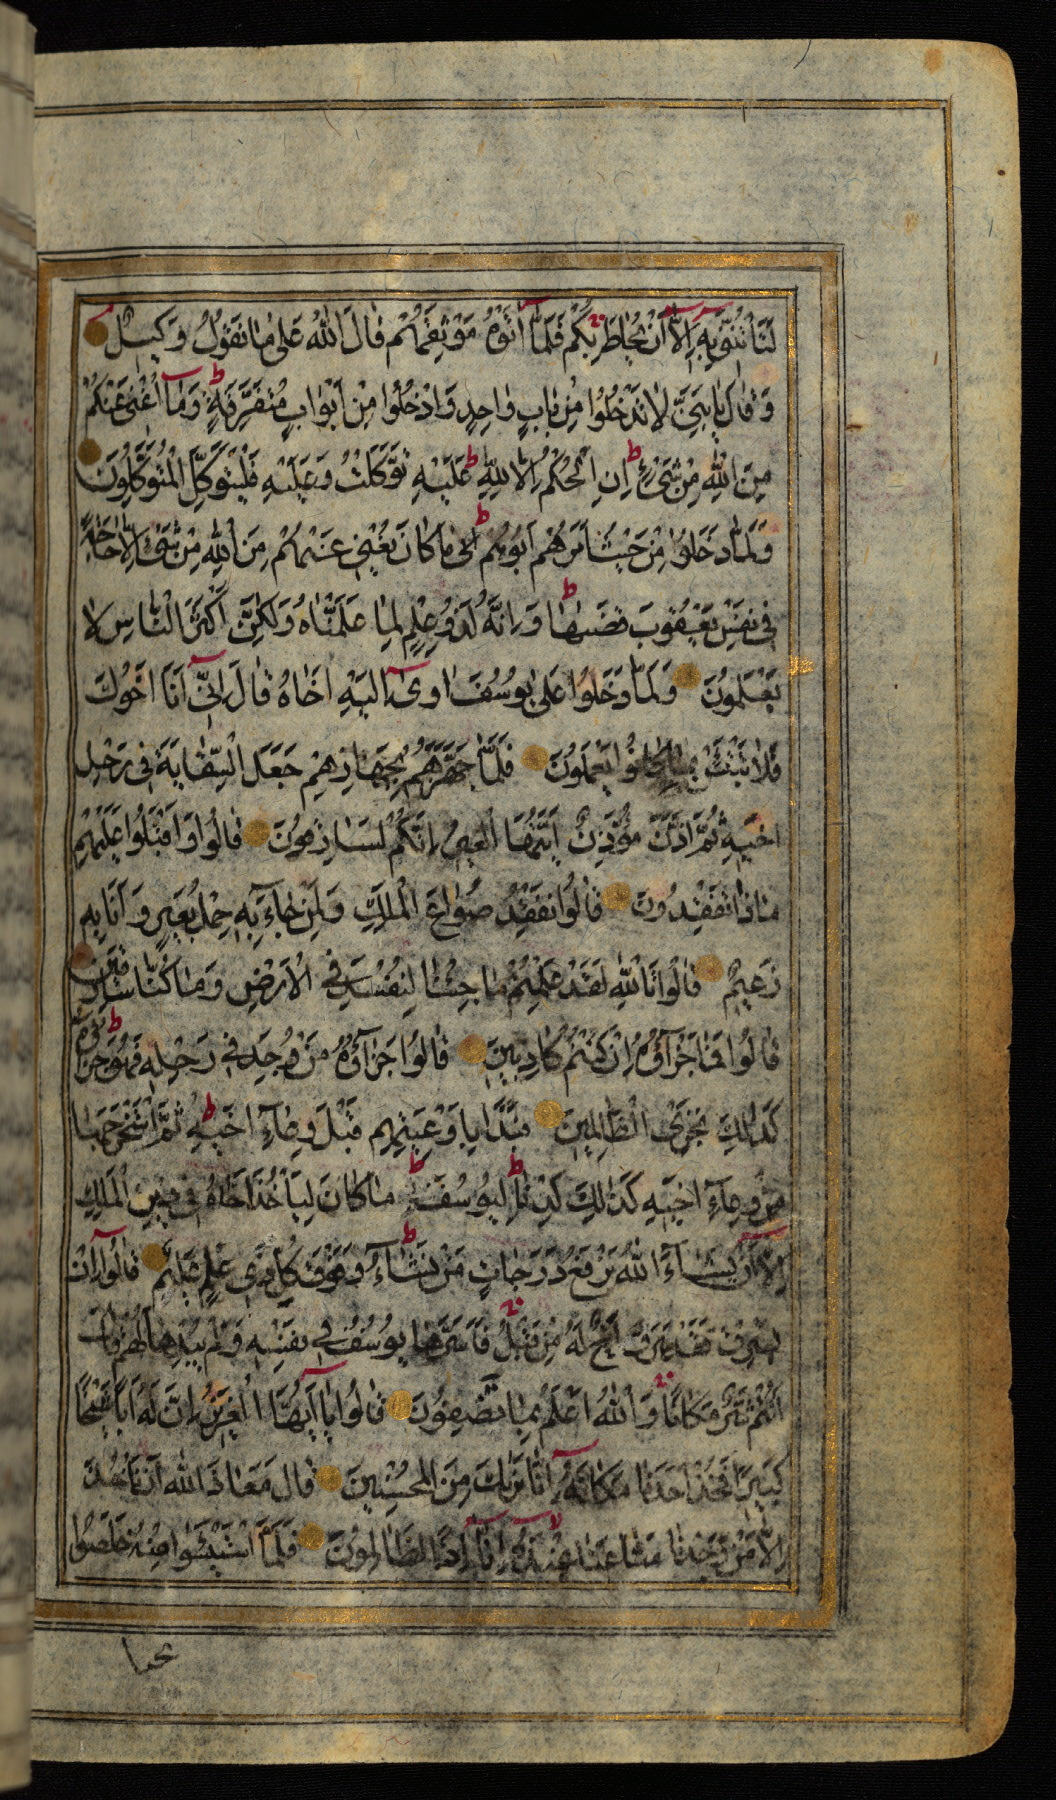 لَتَأْتُنَّنِي بِهِ إِلَّا أَنْ يُحَاطَ بِكُمْ فَلَمَّا آتَوْهُ مَوْثِقَهُمْ قَالَ اللَّهُ عَلَى مَا نَقُولُ وَكِيلٌ
وَقَالَ يَا بَنِيَّ لَا تَدْخُلُوا مِنْ بَابٍ وَاحِدٍ وَادْخُلُوا مِنْ أَبْوَابٍ مُتَفَرِّقَةٍ ط وَمَا أُغْنِي عَنْكُمْ
مِنَ اللَّهِ مِنْ شَيْءٍ ط إِنِ الْحُكْمُ إِلَّا لِلَّهِ ط عَلَيْهِ تَوَكَّلْتُ وَعَلَيْهِ فَلْيَتَوَكَّلِ الْمُتَوَكِّلُونَ
وَلَمَّا دَخَلُوا مِنْ حَيْثُ أَمَرَهُمْ أَبُوهُمْ ط مَا كَانَ يُغْنِي عَنْهُمْ مِنَ اللَّهِ مِنْ شَيْءٍ إِلَّا حَاجَةً
فِي نَفْسِ يَعْقُوبَ قَضَاهَا ط وَإِنَّهُ لَذُو عِلْمٍ لِمَا عَلَّمْنَاهُ وَلَكِنَّ أَكْثَرَ النَّاسِ لَا
يَعْلَمُونَ وَلَمَّا دَخَلُوا عَلَى يُوسُفَ آوَى إِلَيْهِ أَخَاهُ قَالَ إِنِّي أَنَا أَخُوكَ
فَلَا تَبْتَئِسْ بِمَا كَانُوا يَعْمَلُونَ فَلَمَّا جَهَّزَهُمْ بِجَهَازِهِمْ جَعَلَ السِّقَايَةَ فِي رَحْلِ
أَخِيهِ ثُمَّ أَذَّنَ مُؤَذِّنٌ أَيَّتُهَا الْعِيرُ إِنَّكُمْ لَسَارِقُونَ قَالُوا وَأَقْبَلُوا عَلَيْهِمْ
مَاذَا تَفْقِدُونَ قَالُوا نَفْقِدُ صُوَاعَ الْمَلِكِ وَلِمَنْ جَاءَ بِهِ حِمْلُ بَعِيرٍ وَأَنَا بِهِ
زَعِيمٌ قَالُوا تَاللَّهِ لَقَدْ عَلِمْتُمْ مَا جِئْنَا لِنُفْسِدَ فِي الْأَرْضِ وَمَا كُنَّا سَارِقِينَ
قَالُوا فَمَا جَزَاؤُهُ إِنْ كُنْتُمْ كَاذِبِينَ قَالُوا جَزَاؤُهُ مَنْ وُجِدَ فِي رَحْلِهِ فَهُوَ جَزَاؤُهُ ط
كَذَلِكَ نَجْزِي الظَّالِمِينَ فَبَدَأَ بِأَوْعِيَتِهِمْ قَبْلَ وِعَاءِ أَخِيهِ ثُمَّ اسْتَخْرَجَهَا
مِنْ وِعَاءِ أَخِيهِ ط كَذَلِكَ كِدْنَا لِيُوسُفَ ط مَا كَانَ لِيَأْخُذَ أَخَاهُ فِي دِينِ الْمَلِكِ
إِلَّا أَنْ يَشَاءَ اللَّهُ نَرْفَعُ دَرَجَاتٍ مَنْ نَشَاءُ ط وَفَوْقَ كُلِّ ذِي عِلْمٍ عَلِيمٌ قَالُوا إِنْ
يَسْرِقْ فَقَدْ سَرَقَ أَخٌ لَهُ مِنْ قَبْلُ فَأَسَرَّهَا يُوسُفُ فِي نَفْسِهِ وَلَمْ يُبْدِهَا لَهُمْ قَالَ
أَنْتُمْ شَرٌّ مَكَانًا وَاللَّهُ أَعْلَمُ بِمَا تَصِفُونَ قَالُوا يَا أَيُّهَا الْعَزِيزُ إِنَّ لَهُ أَبًا شَيْخًا
كَبِيرًا فَخُذْ أَحَدَنَا مَكَانَهُ إِنَّا نَرَاكَ مِنَ الْمُحْسِنِينَ قَالَ مَعَاذَ اللَّهِ أَنْ نَأْخُذَ
إِلَّا مَنْ وَجَدْنَا مَتَاعَنَا عِنْدَهُ إِنَّا إِذًا لَظَالِمُونَ فَلَمَّا اسْتَيْئَسُوا مِنْهُ خَلَصُوا
نجيا